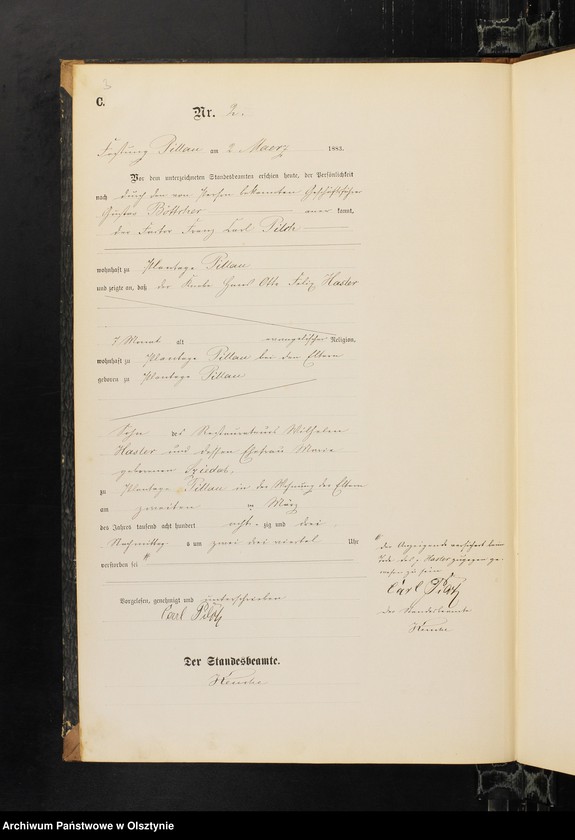 3
C.
Nr. 2.
Festung Pillau am 2 Maerz 1883.
Vor dem unterzeichneten Standesbeamten erschien heute, der Persönlichkeit
nach durch den von Person bekannten Geschäftsführer
Gustav Böttcher aner kannt,
der Franz Carl Pilch
wohnhaft zu Plantage Pillau
und zeigte an, daß der Knabe Hans Otto Felix Hasler
7 Monat alt evangelischer Religion,
wohnhaft zu Plantage Pillau bei den Eltern
geboren zu Plantage Pillau
Sohn des Restaurateurs Wilhelm
Hasler und dessen Ehefrau Marie
geborenen
zu Plantage Pillau in der Wohnung der Eltern
am zweiten ten März
des Jahres tausend acht hundert acht- zig und drei
Nachmittags um zwei drei viertel Uhr
verstorben sei #
Vorgelesen, genehmigt und unterschrieben
Carl
Der Standesbeamte.
# Der Anzeigende versichert beim
Tode des p Hasler zugegen ge-
wesen zu sein
Carl
der Standesbeamte
Archiwum Państwowe w Olsztynie